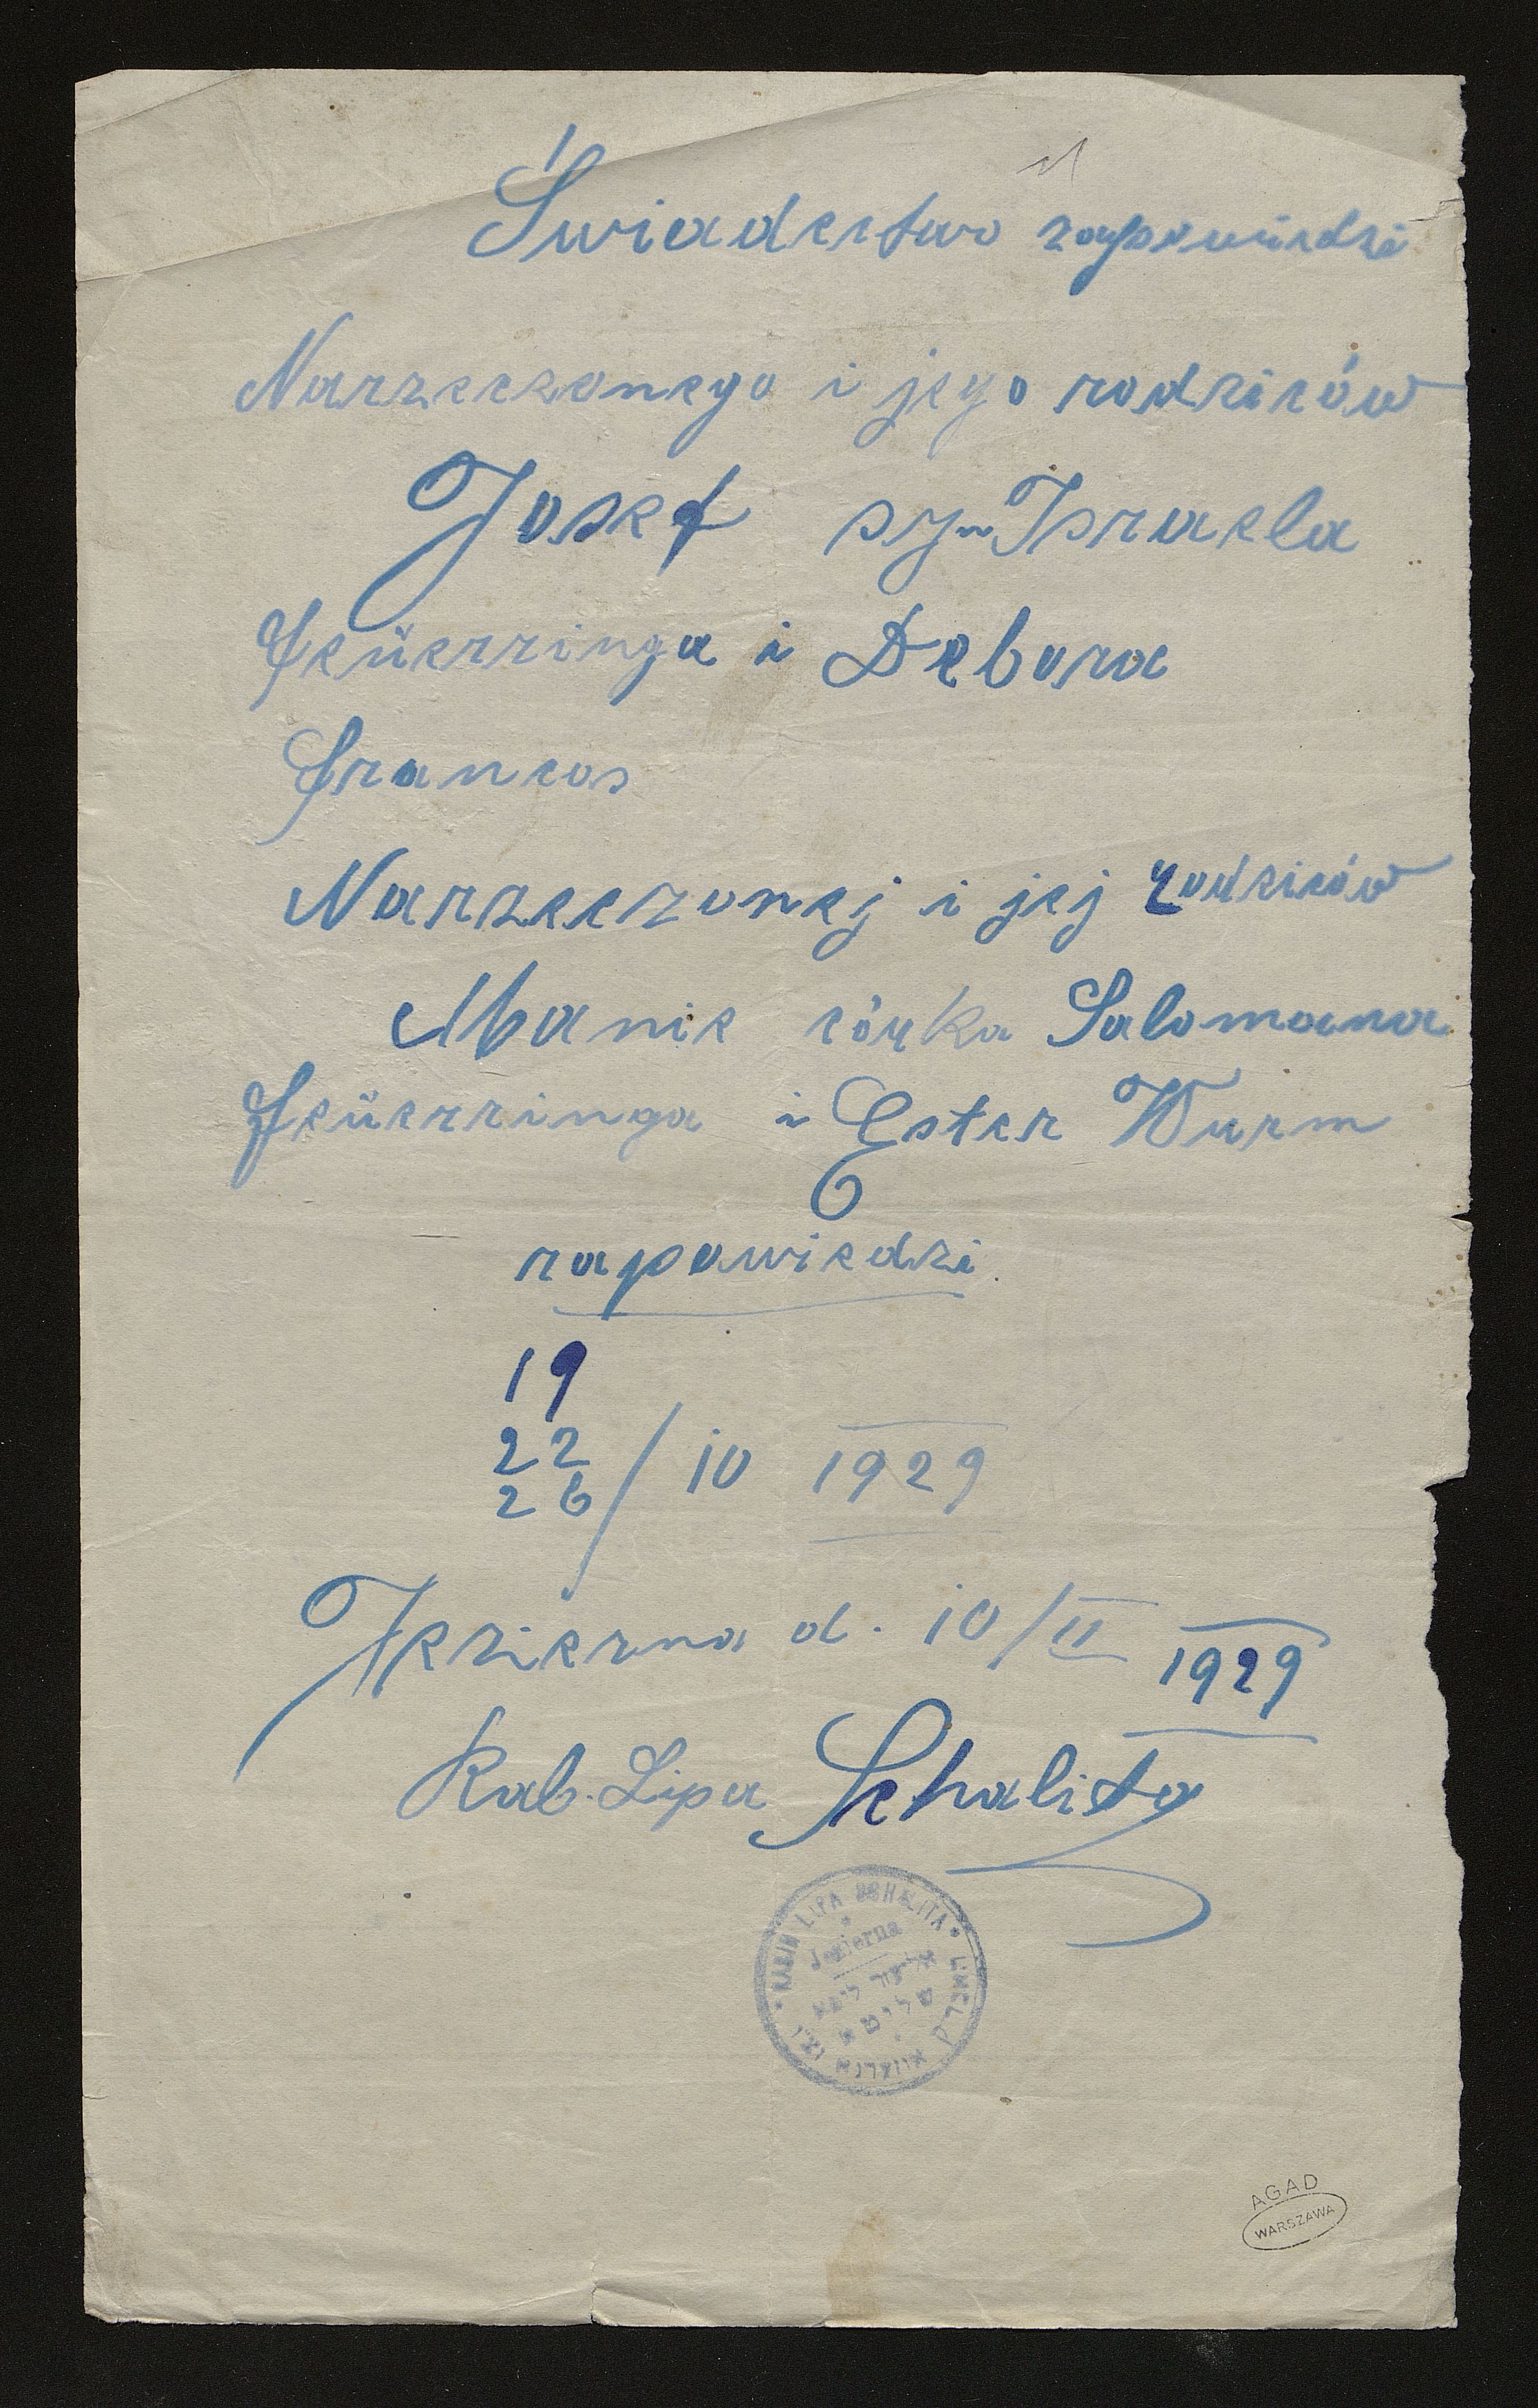 Świadectwo zapowiedzi
Narzeczonego i jego rodziców
Josef syn Israela
Feüerringa i Debora
Francos
Narzeczonej i jej rodziców
Manie córka Salomana
Feüerringa i Ester Wurm
zapowiedzi
19
22
26 / 10 1929
Jezierna d. 10/II 1929
Rab. Lipa Schalita
RABIN LIPA SCHALITA
Jezierna
AGAD
WARSZAWA